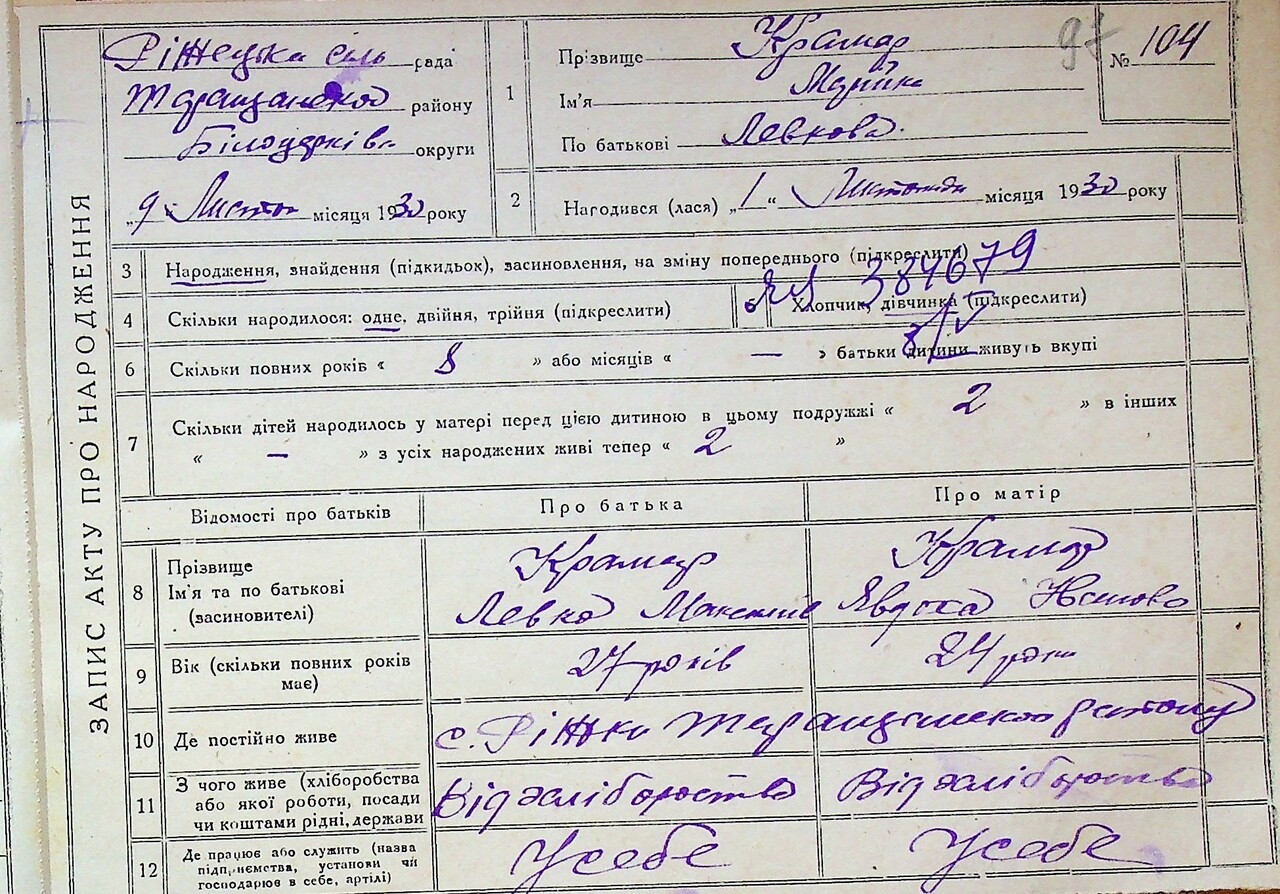 ЗАПИС АКТУ ПРО НАРОДЖЕННЯ
Ріжецька сіль рада
Таращанской району
Білоцерків. округи
„9" Листоп місяця 1930 року
1
Прізвище Крамар
Ім'я Марійка
По батькові Левкова.
97
№ 104
2
Народився (лася) „1" Листопада місяця 1930 року
3 Народження, знайдення (підкидьок), засиновлення, на зміну попереднього (підкреслити)
384679
4 Скільки народилося: одне, двійня, трійня (підкреслити)
Хлопчик, дівчинка (підкреслити)
6 Скільки повних років « 8 » або місяців « — » батьки дитини живуть вкупі
7 Скільки дітей народилось у матері перед цією дитиною в цьому подружжі « 2 » в інших
« — » з усіх народжених живі тепер « 2 »
Відомості про батьків
Про батька
Про матір
8 Прізвище
Ім'я та по батькові
(засиновителі)
Крамар
Левко Максимів
Крамар
Явдоха
9 Вік (скільки повних років
має)
27 років
24 роки
10 Де постійно живе
с. Ріжки Таращанського району
11 З чого живе (хліборобства
або якої роботи, посади
чи коштами рідні, держави
Від хліборобства
Від хліборобства
12 Де працює або служить (назва
підприємства, установи чи
господарює в себе, артілі)
У себе
У себе